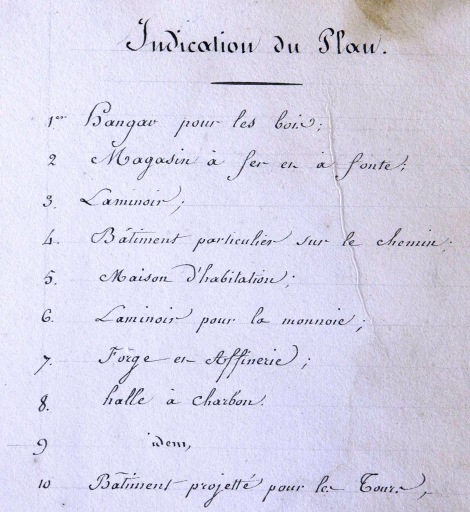 Indication du Plan.
1er Hangar pour les bois;
2 Magasin à fer et à fonte;
3. Laminoir;
4. Bâtiment particulier sur le chemin;
5. Maison d'habitation;
6. Laminoir pour la monnoie;
7. Forge et Affinerie;
8. halle à charbon.
9 idem,
10 Bâtiment projetté pour les Tours,